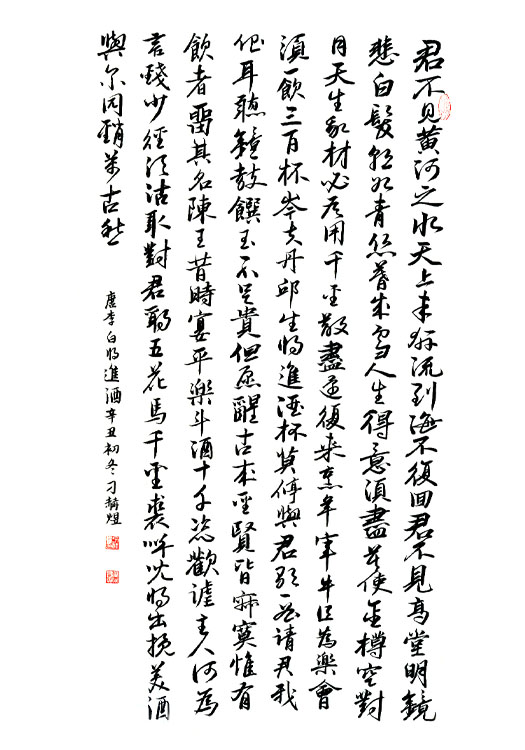 君不見黃河之水天上來奔流到海不復回君不見高堂明鏡
悲白髮朝如青絲暮成雪人生得意須盡莫使金樽空對
月天生我材必有用千金散盡還復來烹羊宰牛且為樂會
須一飲三百杯岑夫丹邱生將進酒杯莫停與君歌一曲請君我
傾耳聽鐘鼓饌玉不足貴但願醒古來聖賢皆寂寞惟有
飲者留其名陳王昔時宴平樂斗酒十千恣歡謔主人何為
言錢少徑須沽取對君酌五花馬千金裘呼兒將出換美酒
與爾同銷萬古愁
唐李白將進酒辛丑初冬刁